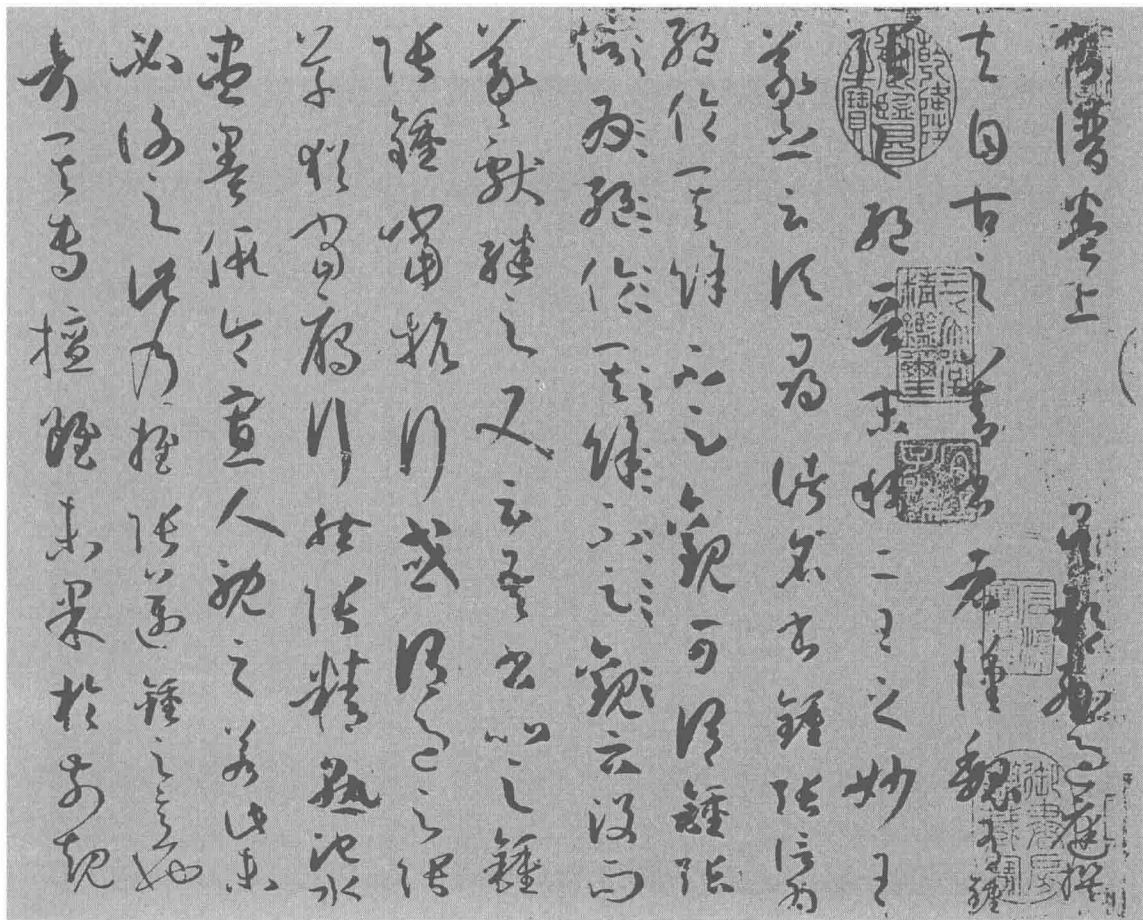 書譜卷上 吳郡孫過庭撰
夫自古之善書者漢魏有鍾
張之絕晉末稱二王之妙王
羲之云頃尋諸名書鍾張信為
絕倫其餘不足觀可謂鍾張
信為絕倫其餘不足觀云沒而
羲獻繼之又云吾書比之鍾
張鍾當抗行或謂過之張
草猶當鴈行然張精熟池水
盡墨假令寡人耽之若此未
必謝之此乃推張邁鍾之意也
考其專擅雖未果於前規
乾隆御覽之寶
三希堂精鑑璽
宜子孫
石渠寶笈